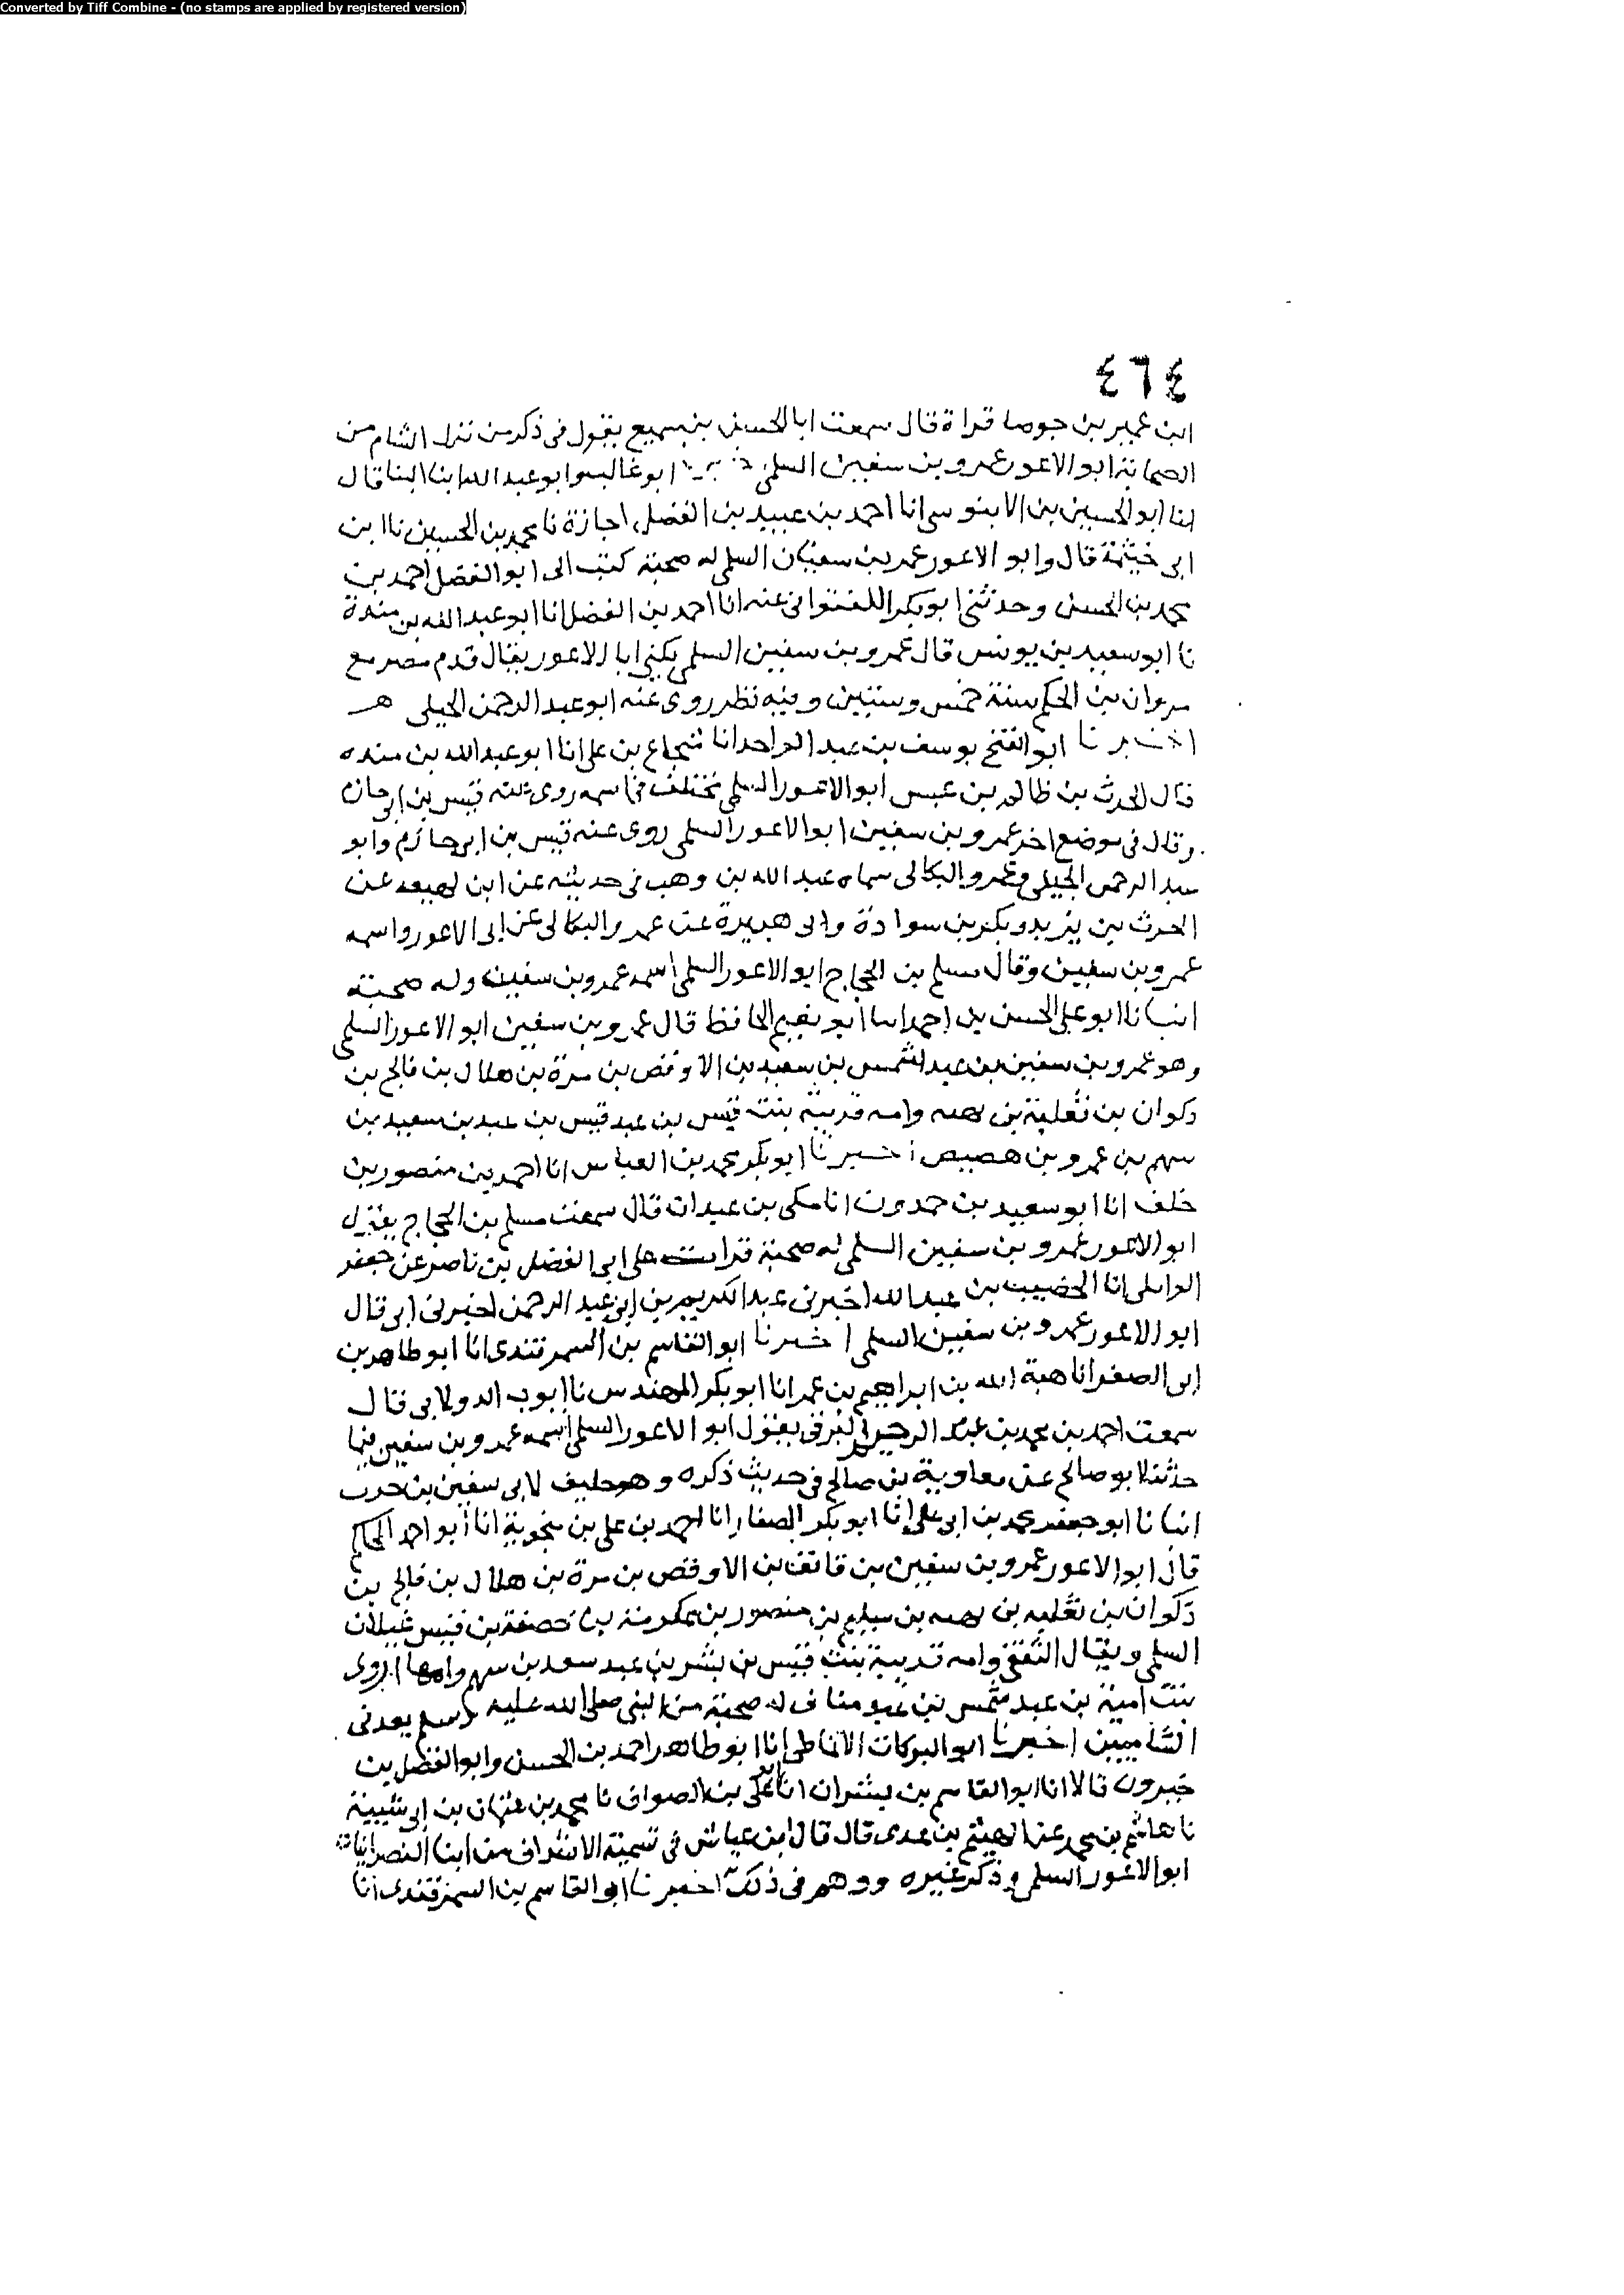 Converted by Tiff Combine - (no stamps are applied by registered version)
٤٦٤
ابن عمير بن جوصا قراة قال سمعت ابا الحسن بن سميع يقول فى ذكر من نزل الشام من
الصحابة ابو الاعور عمرو بن سفين السلمى ابو غالب وابو عبد الله ابنا البنا قال
انا ابو الحسين بن الابنوسى انا احمد بن عبيد بن الفضل اجازة نا محمد بن الحسين نا ابن
ابى خيثمة قال وابو الاعور عمر بن سفيان السلمى له صحبة كتب الى ابو الفضل احمد بن
محمد بن الحسن وحدثنى ابو بكر اللفتوانى عنه انا احمد بن الفضل انا ابو عبد الله بن مندة
نا ابو سعيد بن يونس قال عمرو بن سفين السلمى يكنى ابا الاعور يقال قدم مصر مع
مروان بن الحكم سنة خمس وستين وفيه نظر روى عنه ابو عبد الرحمن الحبلى
اخبرنا ابو الفتح يوسف بن عبد الواحد انا شجاع بن على انا ابو عبد الله بن منده
قال الحرث بن ظالم بن عبس ابو الاعور السلمى مختلف فى اسمه روى عنه قيس بن ابى حازم
وقال فى موضع اخر عمرو بن سفين ابو الاعور السلمى روى عنه قيس بن ابى حازم وابو
عبد الرحمن الحبلى وعمرو البكالى سماه عبد الله بن وهب فى حديثه عن ابن لهيعه عن
الحرث بن يزيد وبكر بن سوادة وابى هبيرة عن عمرو البكالى عن ابى الاعور واسمه
عمرو بن سفين وقال مسلم بن الحجاج ابو الاعور السلمى اسمه عمرو بن سفين وله صحبة
انبانا ابو على الحسن بن احمد انا ابو نعيم الحافظ قال عمرو بن سفين ابو الاعور السلمى
وهو عمرو بن سفين بن عبد الشمس بن سعيد بن الاوقص بن مرة بن هلال بن فالج بن
ذكوان بن ثعلبة بن بهثه وامه قريبة بنت قيس بن عبد قيس بن عبد بن سعيد بن
سهم بن عمرو بن هصيص اخبرنا ابو بكر محمد بن العباس انا احمد بن منصور بن
خلف انا ابو سعيد بن حمدون انا مكى بن عبدان قال سمعت مسلم بن الحجاج يقول
ابو الاعور عمرو بن سفين السلمى له صحبة قرات على ابى الفضل بن ناصر عن جعفر
انا الخصيب بن عبد الله اخبرنى عبد الكريم بن ابى عبد الرحمن اخبرنى ابى قال
ابو الاعور عمرو بن سفين السلمى اخبرنا ابو القاسم بن السمرقندى انا ابو طاهر بن
ابى الصقر انا هبة الله بن ابراهيم بن عمر انا ابو بكر المهندس نا ابو بـ الدولابى قال
سمعت احمد بن محمد بن عبد الرحيم البرقى يقول ابو الاعور السلمى اسمه عمرو بن سفين فيما
حدثنا ابو صالح عن معاوية بن صالح فى حديث ذكره وهو حليف لابى سفين بن حرب
انبانا ابو جعفر محمد بن ابى على انا ابو بكر الصفار انا احمد بن على بن منجوية انا ابو احمد الحاكم
قال ابو الاعور عمرو بن سفين بن قائف بن الاوقص بن مرة بن هلال بن فالج بن
ذكوان بن ثعلبه بن بهثه بن سليم بن منصور بن عكرمة بن خصفة بن قيس عيلان
السلمى ويقال الثقفى وامه قريبة بنت قيس بن بشر بن عبد سعد بن سهم وامها اروى
بنت امية بن عبد شمس بن عبد مناف له صحبة من النبى صلى الله عليه وسلم يعد فى
الشاميين اخبرنا ابو البركات الانماطى انا ابو طاهر احمد بن الحسن وابو الفضل بن
خيرون قالا انا ابو القاسم بن بشران انا ابو على بن الصواف نا محمد بن عثمان بن ابى شيبة
نا هاشم بن محمد عن الهيثم بن عدى قال قال ابن عياش فى تسمية الاشراف من ابنا النصرانيات
ابو الاعور السلمى وذكر غيره ووهم فى ذلك اخبرنا ابو القاسم بن السمرقندى انا